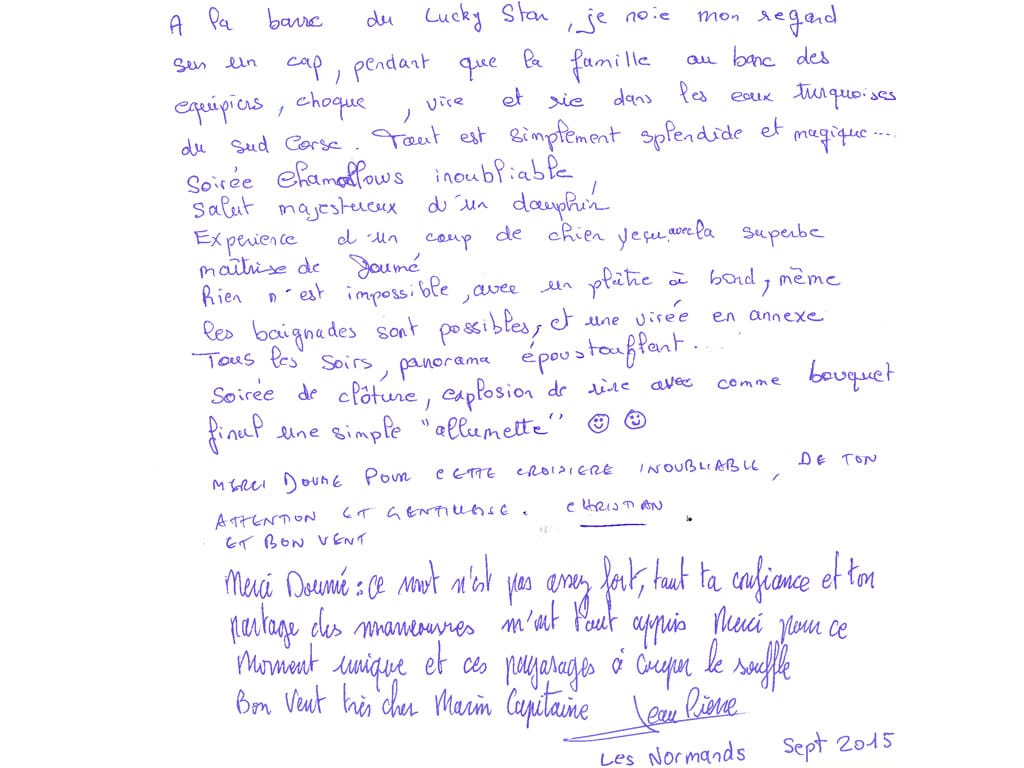 A la barre du Lucky Star, je noie mon regard
sur un cap, pendant que la famille au banc des
équipiers, choque , vire et rie dans les eaux turquoises
du Sud Corse. Tout est simplement splendide et magique...
Soirée Chamallows inoubliable
Salut majestueux d'un dauphin
Expérience d'un coup de chien avec la superbe
maîtrise de Doumé
Rien n'est impossible, avec un plâtre à bord, même
les baignades sont possibles, et une virée en annexe
Tous les soirs, panorama époustouflant...
Soirée de clôture, explosion de rire avec comme bouquet
final une simple "allumette" ☺ ☺
MERCI DOUME POUR CETTE CROISIERE INOUBLIABLE, DE TON
ATTENTION ET GENTILLESSE. CHRISTIAN
ET BON VENT
Merci Doumé : ce mot n'est pas assez fort, tant ta confiance et ton
partage des manœuvres m'ont tant appris Merci pour ce
Moment unique et ces paysages à couper le souffle
Bon Vent très cher Marin Capitaine Jean Pierre
Les Normands Sept 2015